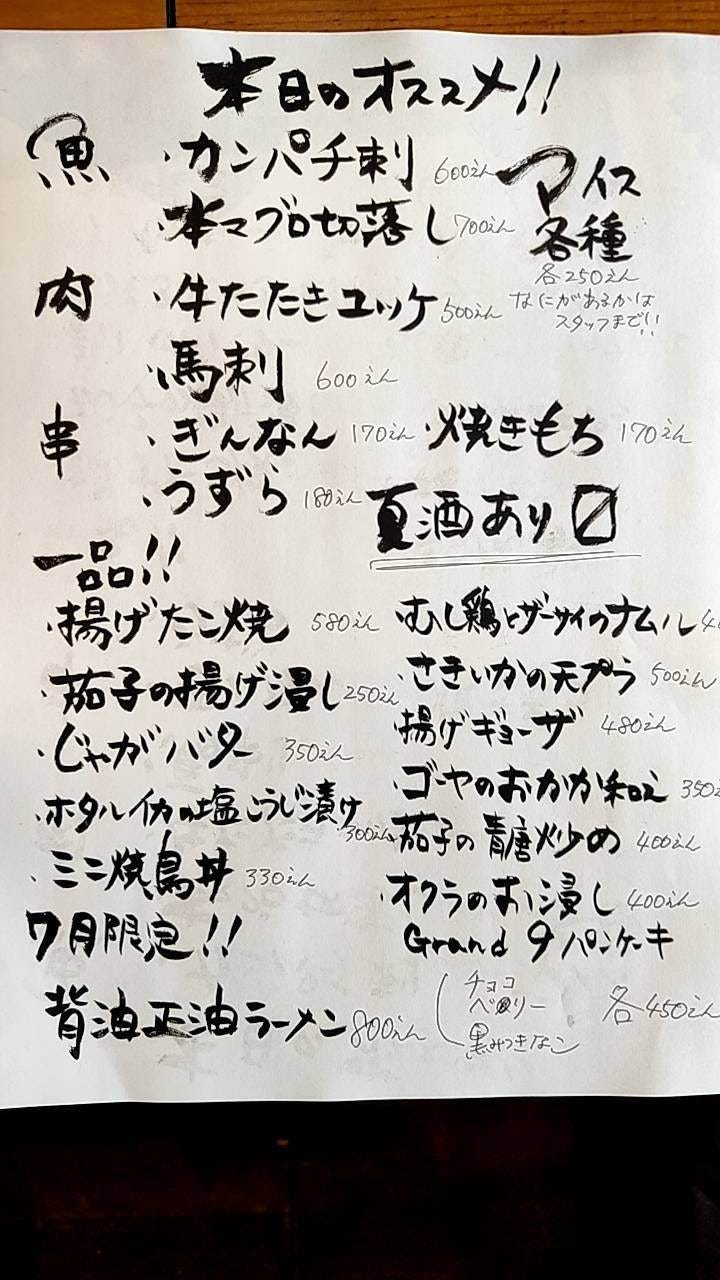 本日のオススメ!!
魚
・カンパチ刺 600えん
・本マグロ切落し 700えん
アイス
各種
各250えん
なにがあるかは
スタッフまで!!
肉
・牛たたきユッケ 500えん
・馬刺 600えん
串
・ぎんなん 170えん
・焼きもち 170えん
・うずら 180えん
夏酒あり〼
一品!!
・揚げたこ焼 580えん
・茄子の揚げ浸し 250えん
・じゃがバター 350えん
・ホタルイカの塩こうじ漬け 300えん
・ミニ焼鳥丼 330えん
・むし鶏とザーサイのナムル
・さきいかの天プラ 500えん
・揚げギョーザ 480えん
・ゴーヤのおかか和え 350え
・茄子の青唐炒め 400えん
・オクラのお浸し 400えん
7月限定!!
背油正油ラーメン 800えん
Grand 9 パンケーキ
チョコ
ベリー
黒みつきなこ
各450えん